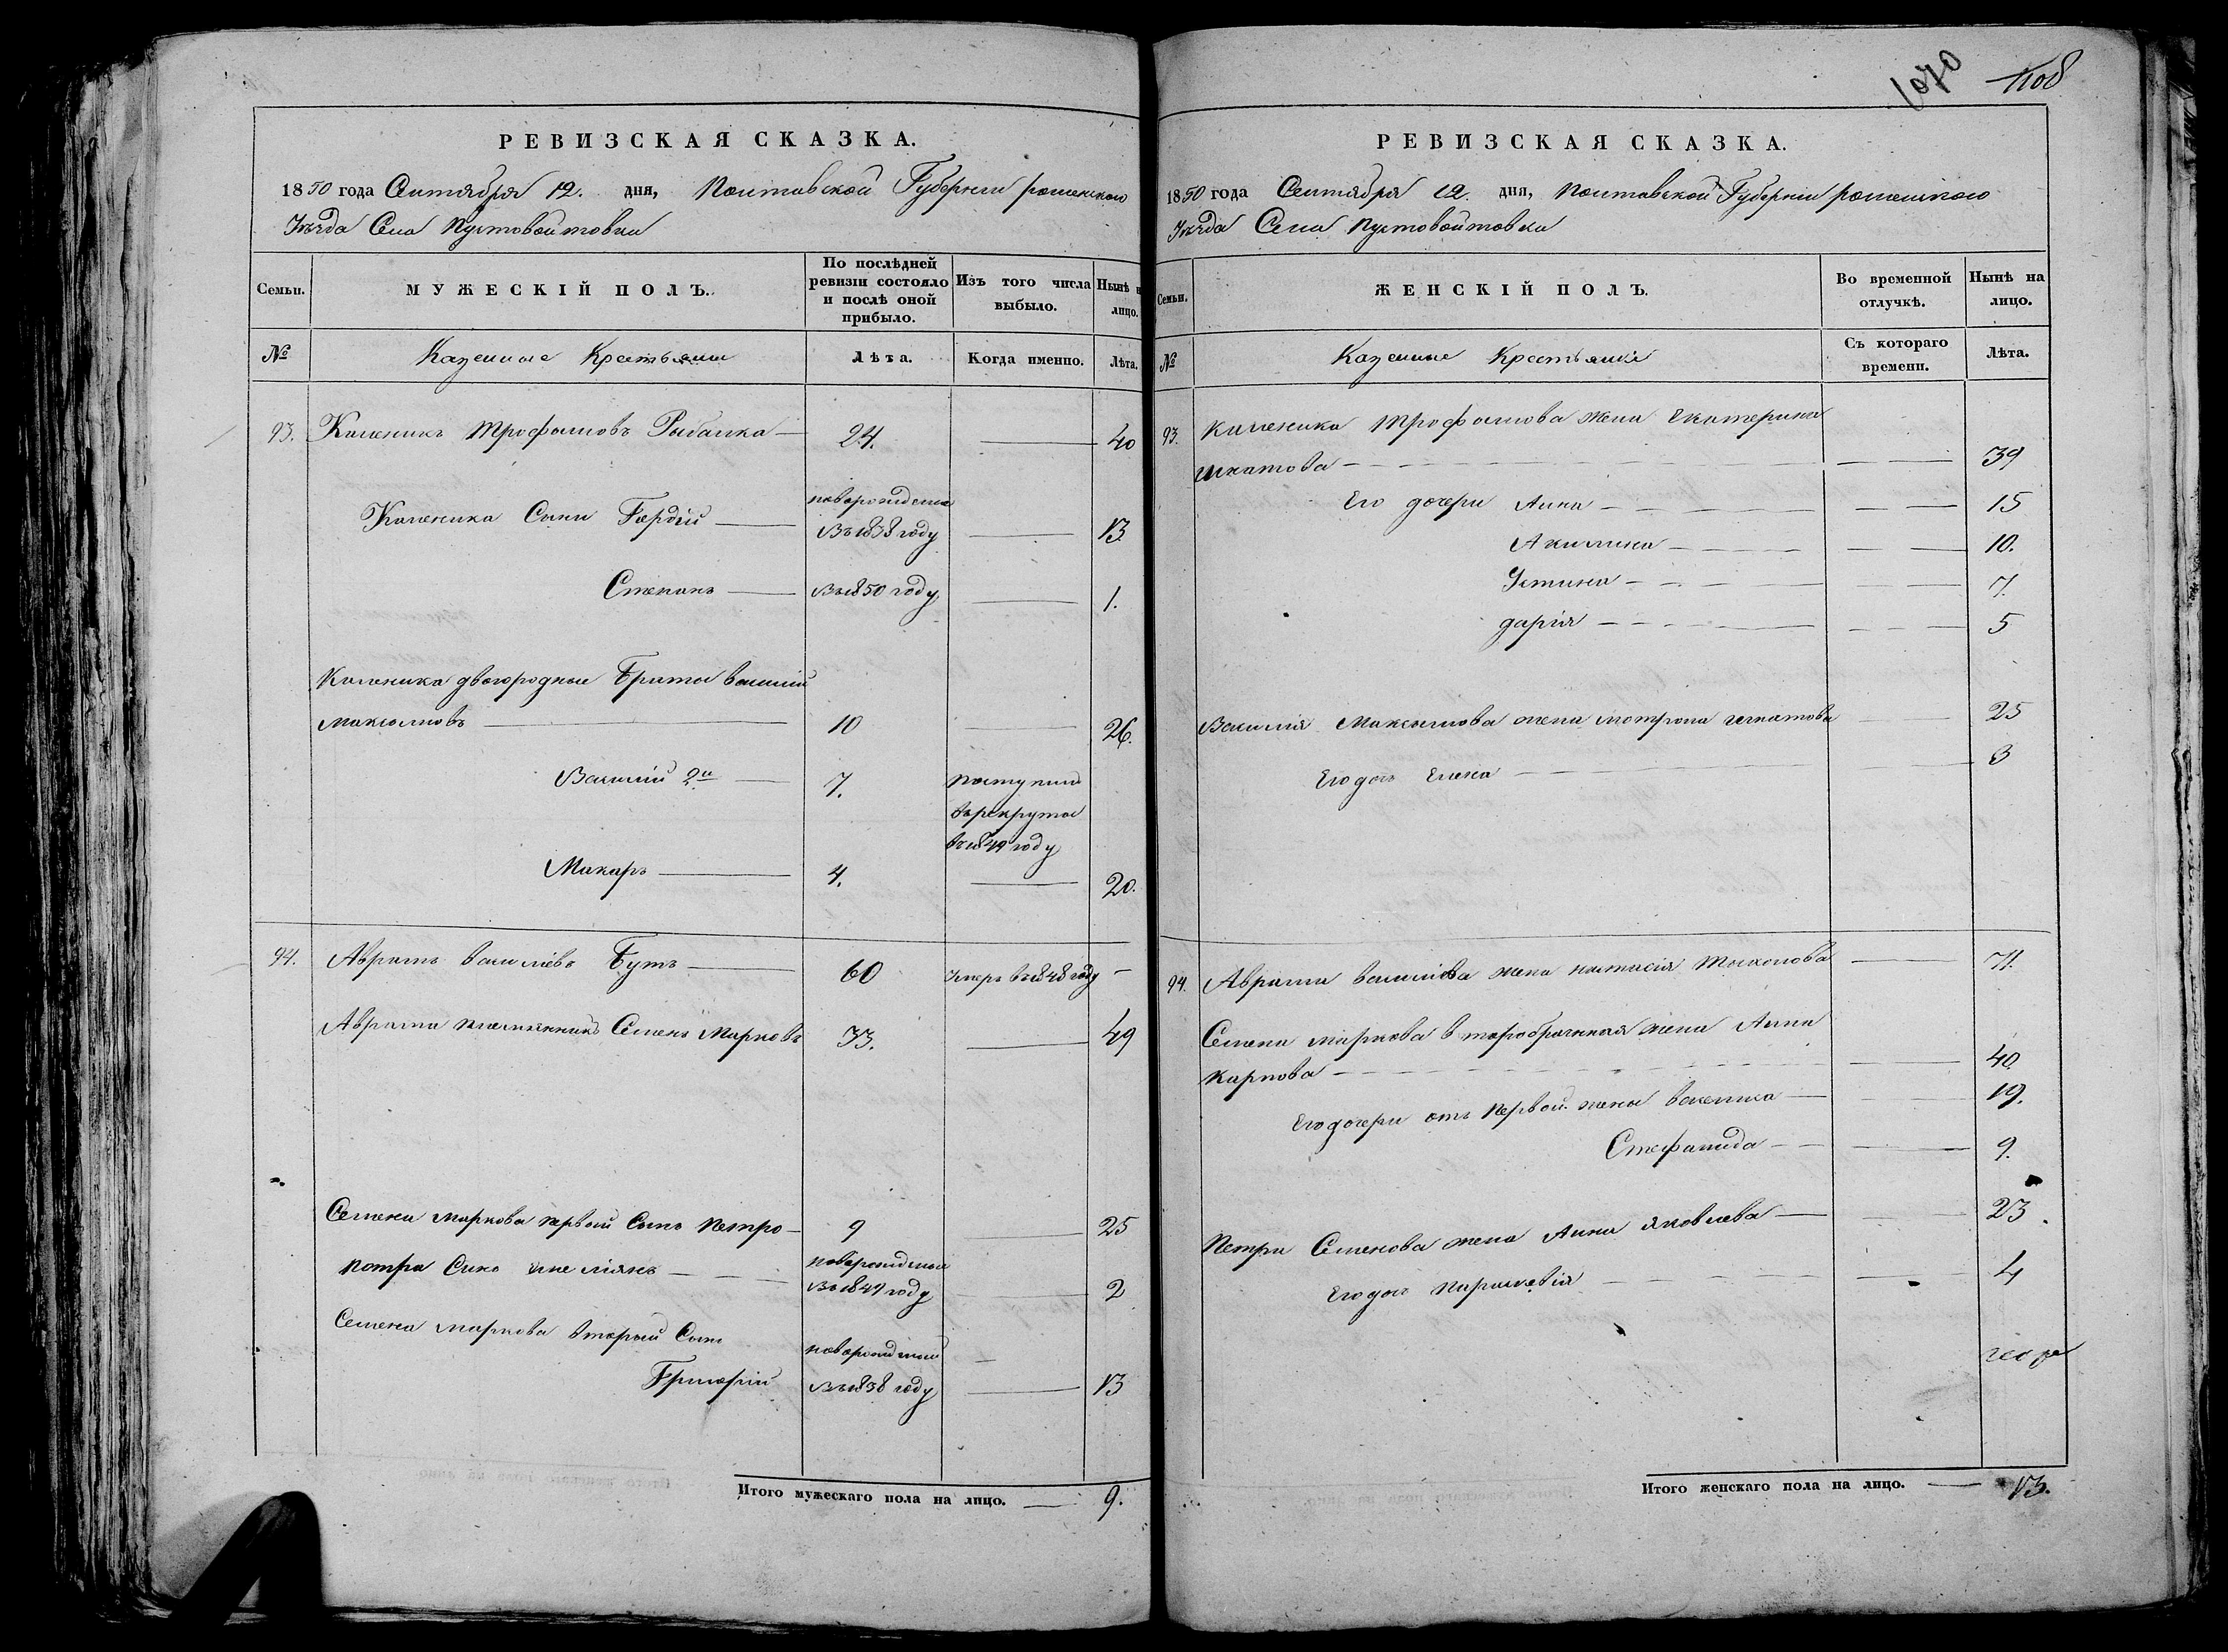 1070 1108
РЕВИЗСКАЯ СКАЗКА.
1850 года Сентября 12. дня, Полтавской Губернии роменского
Уѣзда Села Пустовойтовки
Семьи.
МУЖЕСКІЙ ПОЛЪ.
По послѣдней ревизіи состояло и послѣ оной прибыло.
Изъ того числа выбыло.
Нынѣ на лицо.
№
Казенные Крестьяни
Лѣта.
Когда именно.
Лѣта.
93. Каленикъ трофимовъ Рыбалка — 24. — 40
новорожденны
Каленика Сыни Гордій — въ 1838 году — 13
Степанъ — въ 1850 году — 1.
Каленика двоюродные Браты василий
максимовъ — 10 — 26.
Василий 2й — 7. поступил
врекруты
въ 1849 году
Макаръ — 4. — 20.
94. Аврамъ василіевъ Бутъ — 60 умеръ въ 1848 году —
Аврама племянникъ Семенъ Марковъ 33. — 49
Семена маркова первый Сынъ петро — 9 — 25
новорожденый
петра Синъ емеліянъ — въ 1849 году — 2
Семена маркова вторый Сынъ
новорожденый
Григорій въ 1838 году — 13
Итого мужескаго пола на лицо. — 9.
РЕВИЗСКАЯ СКАЗКА.
1850 года Сентября 12. дня, полтавской Губернии роменского
Уѣзда Села пустовойтовки
Семьи.
ЖЕНСКІЙ ПОЛЪ.
Во временной отлучкѣ.
Нынѣ на лицо.
№
Казенные Крестьянки
Съ котораго времени.
Лѣта.
93. каленика трофимова жена екатерина
игнатова — — 39
Его дочери Анна — — 15
Акилина — — 10.
Устина — — 7.
дарія — — 5
Василія Максимова жена мотрона игнатова — 25
Его доч Елена — — 3
94. Аврама василіева жена настасія тихонова — 71.
Семена маркова второбрачная жена Анна
карпова — — 40
Его дочери отъ первой жены василиса — — 19.
Стефанида — — 9.
петра Семенова жена Анна яковлева — — 23.
Его доч параскевія — — 4
Итого женскаго пола на лицо. — 13.